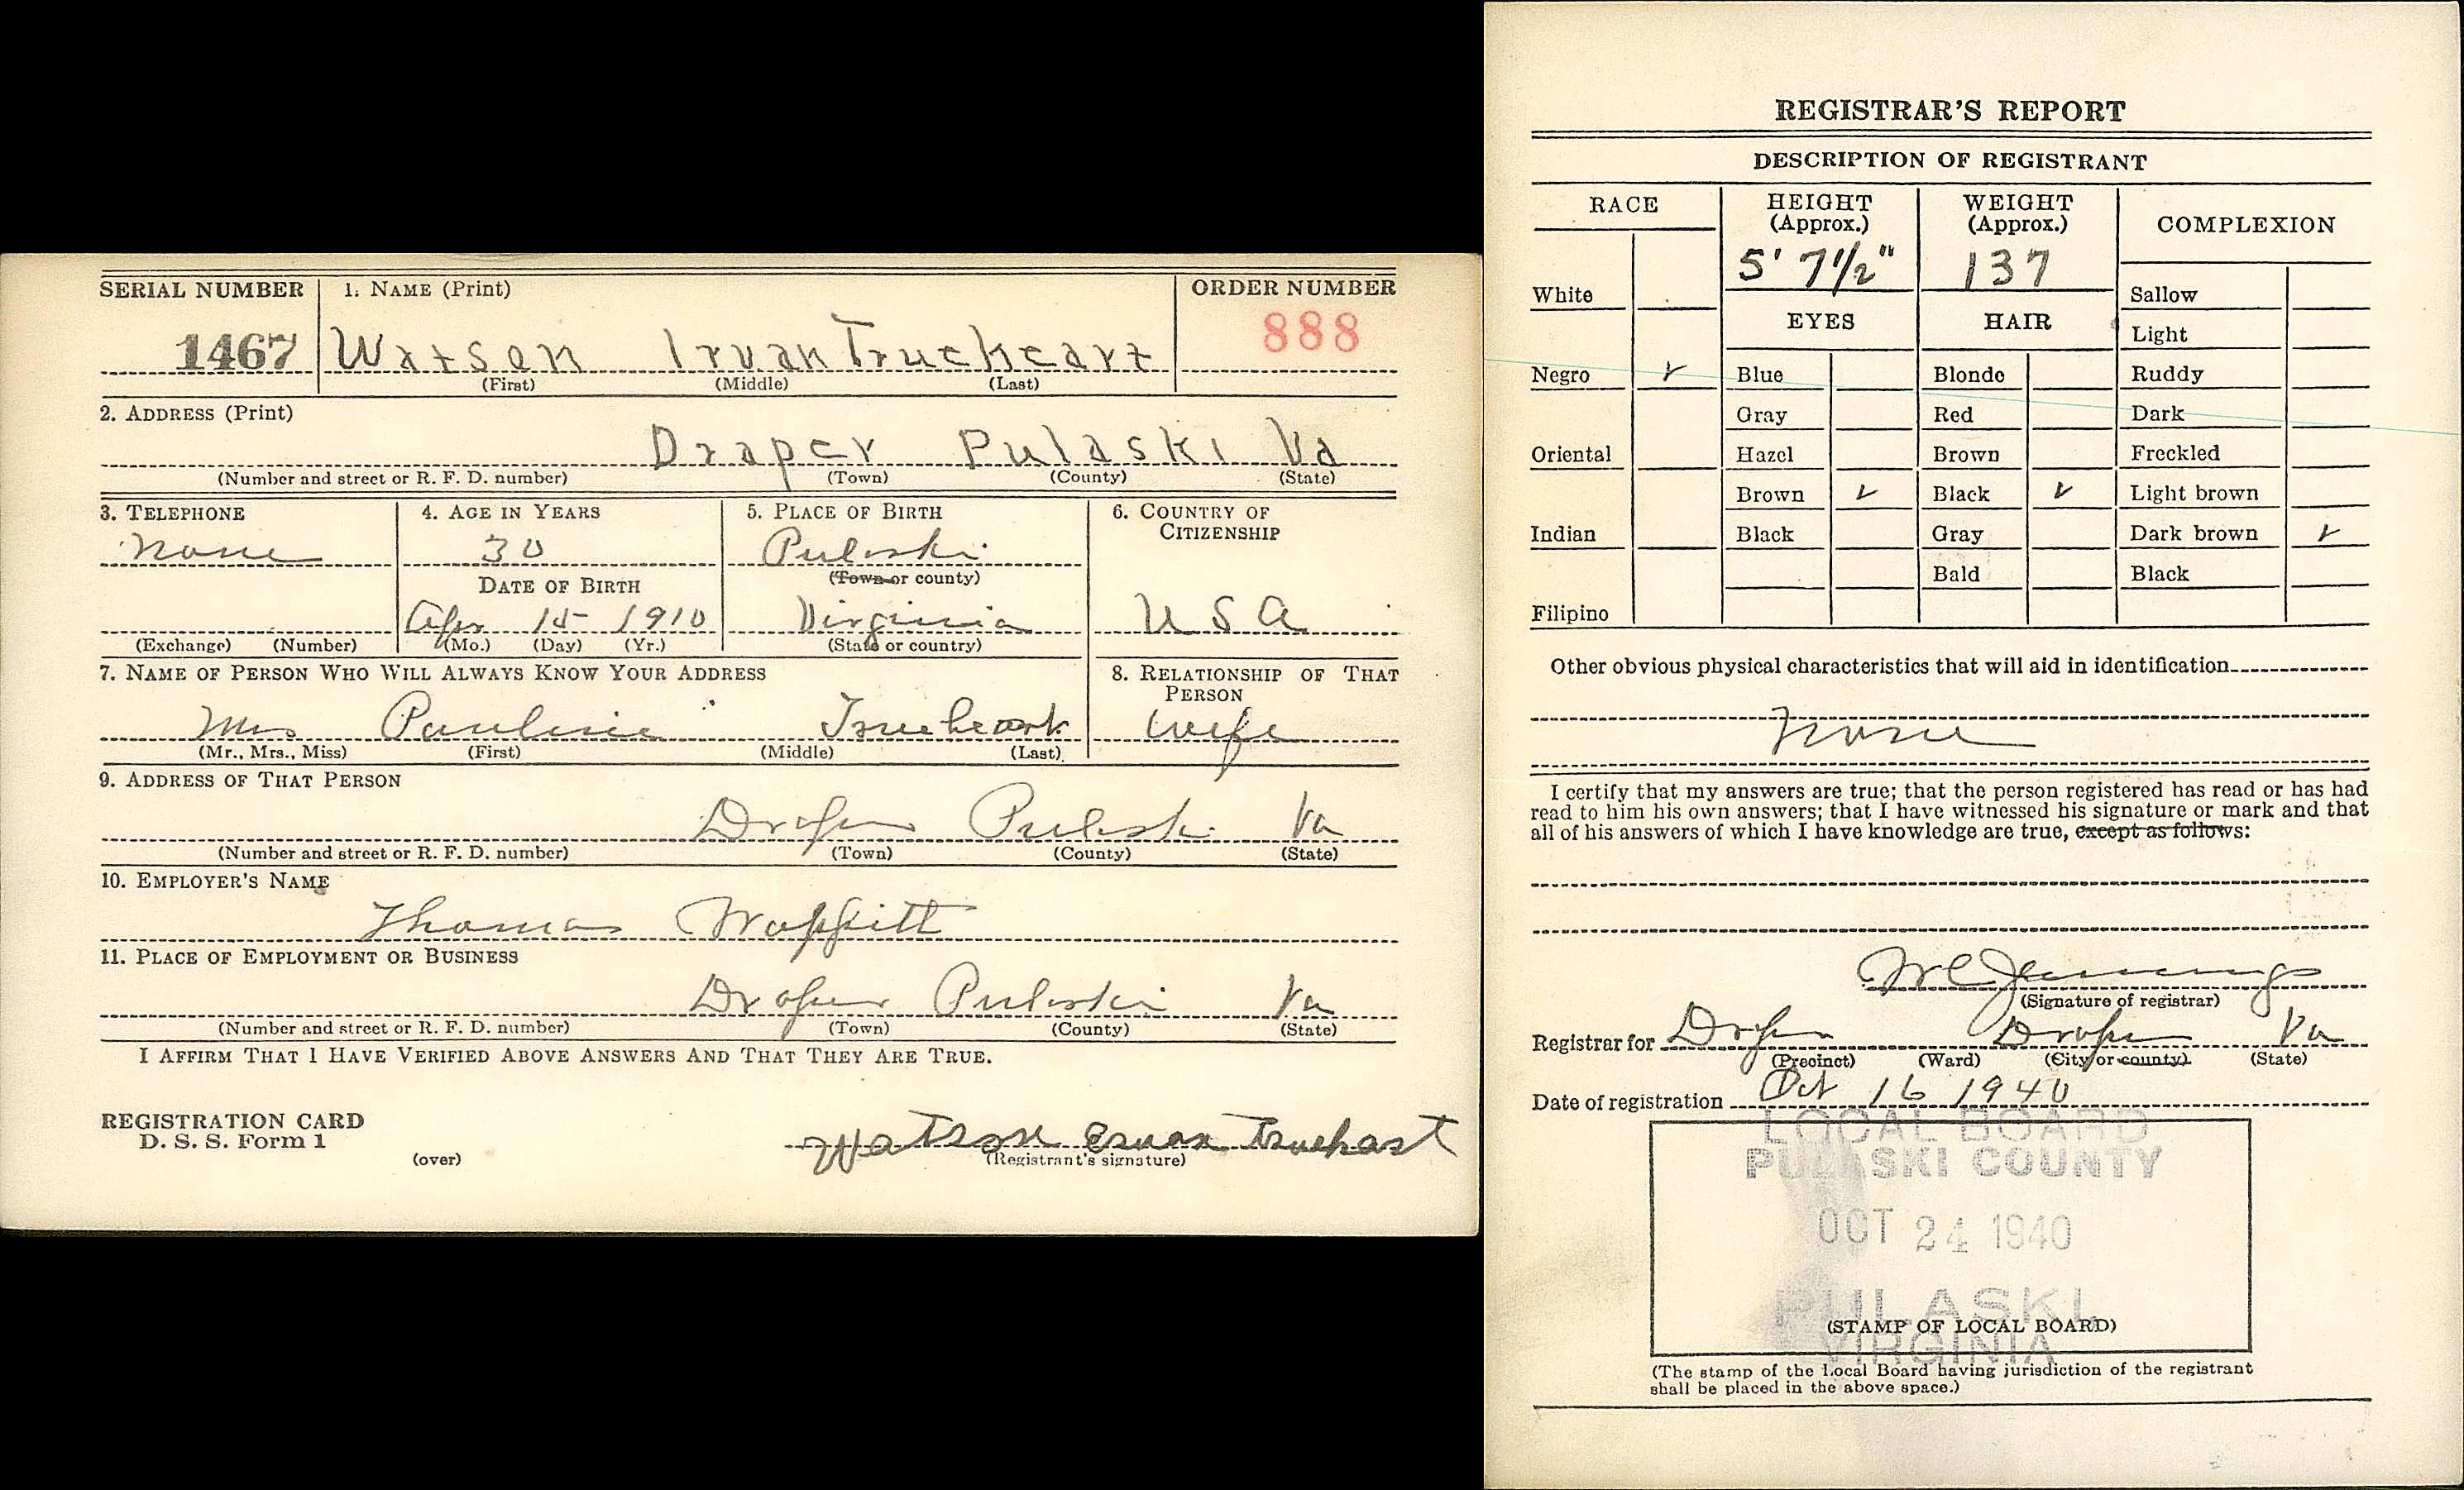 SERIAL NUMBER
1. NAME (Print)
ORDER NUMBER
1467
Watson Irvan Trueheart
888
(First) (Middle) (Last)
2. ADDRESS (Print)
Draper Pulaski Va
(Number and street or R. F. D. number) (Town) (County) (State)
3. TELEPHONE
None
(Exchange) (Number)
4. AGE IN YEARS
30
DATE OF BIRTH
Apr 15 1910
(Mo.) (Day) (Yr.)
5. PLACE OF BIRTH
Pulaski
(Town or county)
Virginia
(State or country)
6. COUNTRY OF
CITIZENSHIP
U S A
7. NAME OF PERSON WHO WILL ALWAYS KNOW YOUR ADDRESS
Mrs Pauline Trueheart
(Mr., Mrs., Miss) (First) (Middle) (Last)
8. RELATIONSHIP OF THAT
PERSON
Wife
9. ADDRESS OF THAT PERSON
Draper Pulaski Va
(Number and street or R. F. D. number) (Town) (County) (State)
10. EMPLOYER'S NAME
Thomas
11. PLACE OF EMPLOYMENT OR BUSINESS
Draper Pulaski Va
(Number and street or R. F. D. number) (Town) (County) (State)
I AFFIRM THAT I HAVE VERIFIED ABOVE ANSWERS AND THAT THEY ARE TRUE.
REGISTRATION CARD
D. S. S. Form 1
(over)
Watson Ervan Truehart
(Registrant's signature)
REGISTRAR'S REPORT
DESCRIPTION OF REGISTRANT
RACE
White
Negro ✓
Oriental
Indian
Filipino
HEIGHT
(Approx.)
5' 7 1/2"
WEIGHT
(Approx.)
137
EYES
Blue
Gray
Hazel
Brown ✓
Black
HAIR
Blonde
Red
Brown
Black ✓
Gray
Bald
COMPLEXION
Sallow
Light
Ruddy
Dark
Freckled
Light brown
Dark brown ✓
Black
Other obvious physical characteristics that will aid in identification
None
I certify that my answers are true; that the person registered has read or has had
read to him his own answers; that I have witnessed his signature or mark and that
all of his answers of which I have knowledge are true, except as follows:
W C Jennings
(Signature of registrar)
Registrar for Draper Draper Va
(Precinct) (Ward) (City or county) (State)
Date of registration Oct 16 1940
LOCAL BOARD
PULASKI COUNTY
OCT 24 1940
PULASKI,
(STAMP OF LOCAL BOARD)
VIRGINIA
(The stamp of the Local Board having jurisdiction of the registrant
shall be placed in the above space.)